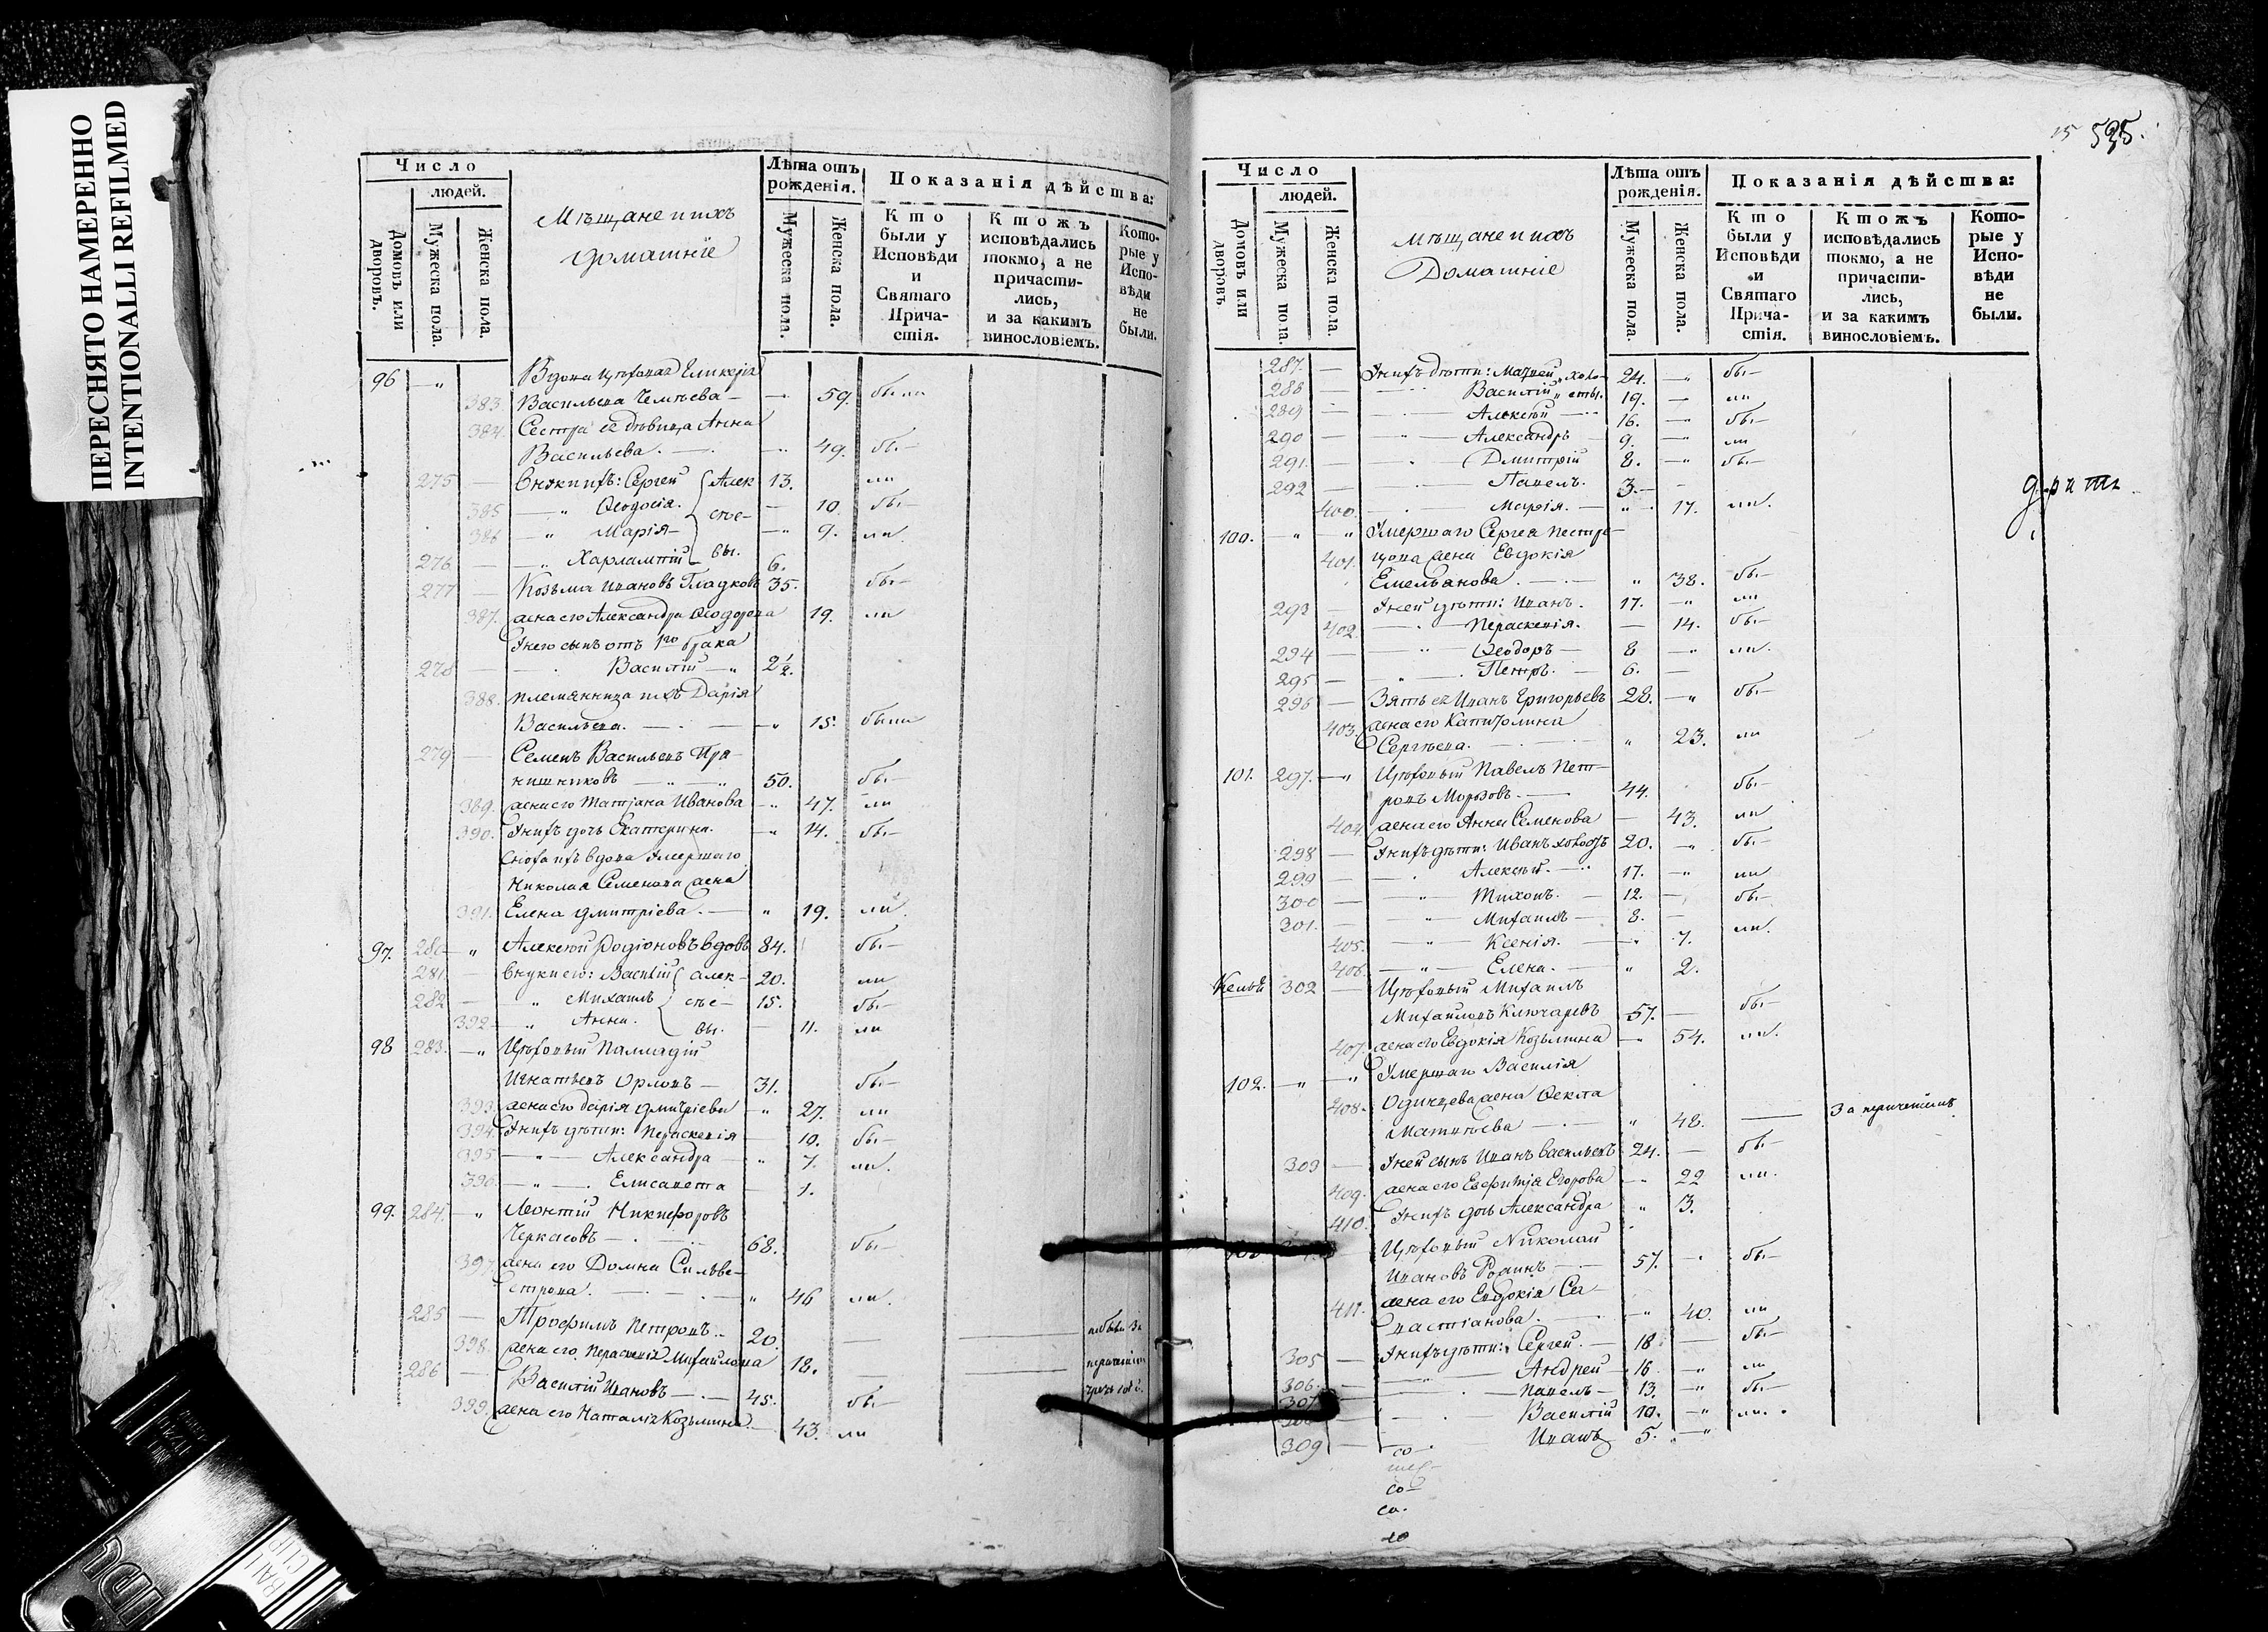 ПЕРЕСНЯТО НАМЕРЕННО
INTENTIONALLI REFILMED
Число
людей.
Домовъ или дворовъ.
Мужеска пола.
Женска пола.
Мѣщане и ихъ
домашніе
Лѣта отъ рожденія.
Мужеска пола.
Женска пола.
Показанія дѣйства:
Кто были у Исповѣди и Святаго Прича-стія.
Ктожъ исповѣдались токмо, а не причасти-лись, и за какимъ винословіемъ.
Кото-рые у Испо-вѣди не были.
96 Вдова цеховая
383. Васильева 59. были
384. Сестра ея дѣвица Анна
Васильева. 49. бы
275 Внуки ихъ: Сергей Алек 13. ли
385 Ѳеодосія. сѣе 10. бы
386 Марія 9. ли
276 Харлампій вы. 6.
277 Козьма Ивановъ Гладковъ 35. бы
387. жена его Александра Ѳеодорова 19. ли
У него сынъ отъ 1го брака
278 Василій 2½.
388. племянница ихъ Дарія
Васильева. 15. были
279 Семенъ Васильевъ Пря-
нишниковъ 50. бы
389. жена его Татіана Иванова 47. ли
390. У нихъ дочь Екатерина. 14. бы
Сноха ихъ вдова Умершаго
Николая Семенова жена
391. Елена Дмитріева. 19. ли
97. 280 Алексѣй Родіоновъ вдовъ 84. бы
281. Внуки его: Василій Алек 20. ли
282 Михаилъ сѣе 15. бы
392 Анна. вы. 11. ли
98 283. Цеховый Палладій
Игнатьевъ Орловъ 31. бы
393. жена его Дарія Дмитріева 27. ли
394. У нихъ дѣти: Параскевія 10. бы
395 Александра 7. ли.
396. Елисавета 1.
99. 284. Леонтій Никифоровъ
Черкасовъ 68. бы
397. жена его Домна Сильве-
строва. 46 ли.
285 Трофимъ Петровъ 20.
398. жена его Параскевія Михайлова 18.
286 Василій Ивановъ 45. бы
399. жена его Наталія Козьмина 43. ли
15 525.
Число
людей.
Домовъ или дворовъ
Мужеска пола.
Женска пола.
мѣщане и ихъ
Домашніе
Лѣта отъ рожденія.
Мужеска пола
Женска пола.
Показанія дѣйства:
Кто были у Исповѣди и Святаго Прича-стія.
Ктожъ исповѣдались токмо, а не причасти-лись, и за какимъ винословіемъ.
Кото-рые у Испо-вѣди не были.
287. У нихъ дѣти: Матвей холо 24. бы
288 Василій сты. 19. ли
289 Алексѣй 16. бы
290 Александръ 9. ли
291. Дмитрій 8. бы
292 Павелъ. 3.
400. Марія. 17. ли.
100. Умершаго Сергея
401. жена Евдокія
Емельянова. 38. бы
293 У ней дѣти: Иванъ. 17. ли
402. Параскевія. 14. бы
294 Ѳеодоръ 8 ли.
295 Петръ. 6.
296 Зять ея Иванъ Григорьевъ 28. бы
403. жена его Капитолина
Сергѣева. 23. ли
101. 297. Цеховый Павелъ Пет-
ровъ Морозовъ. 44. бы
404. жена его Анна Семенова 43. ли
298 У нихъ дѣти: Иванъ холостъ 20. бы
299 Алексѣй. 17. ли
300 Тихонъ. 12. бы
301. Михаилъ 8. ли.
405. Ксенія. 7.
406. Елена. 2.
302 Цеховый Михаилъ
Михайловъ Ключаревъ 57. бы
407. жена его Евдокія Козьмина 54. ли.
102. Умершаго Василія
408. Одинцева жена Ѳекла
Матвѣева 48. За
303 У ней сынъ Иванъ Васильевъ 24. бы
409. жена его Егорова 22 ли.
410. У нихъ дочь Александра 3.
Цеховый Николай
Ивановъ 57. бы
411. жена его Евдокія Са-
вастіанова. 40. ли
305 У нихъ дѣти: Сергей. 18 бы
306. Андрей 16 ли
307 Павелъ 13. бы
308 Василій 10. ли.
309 Иванъ 5.